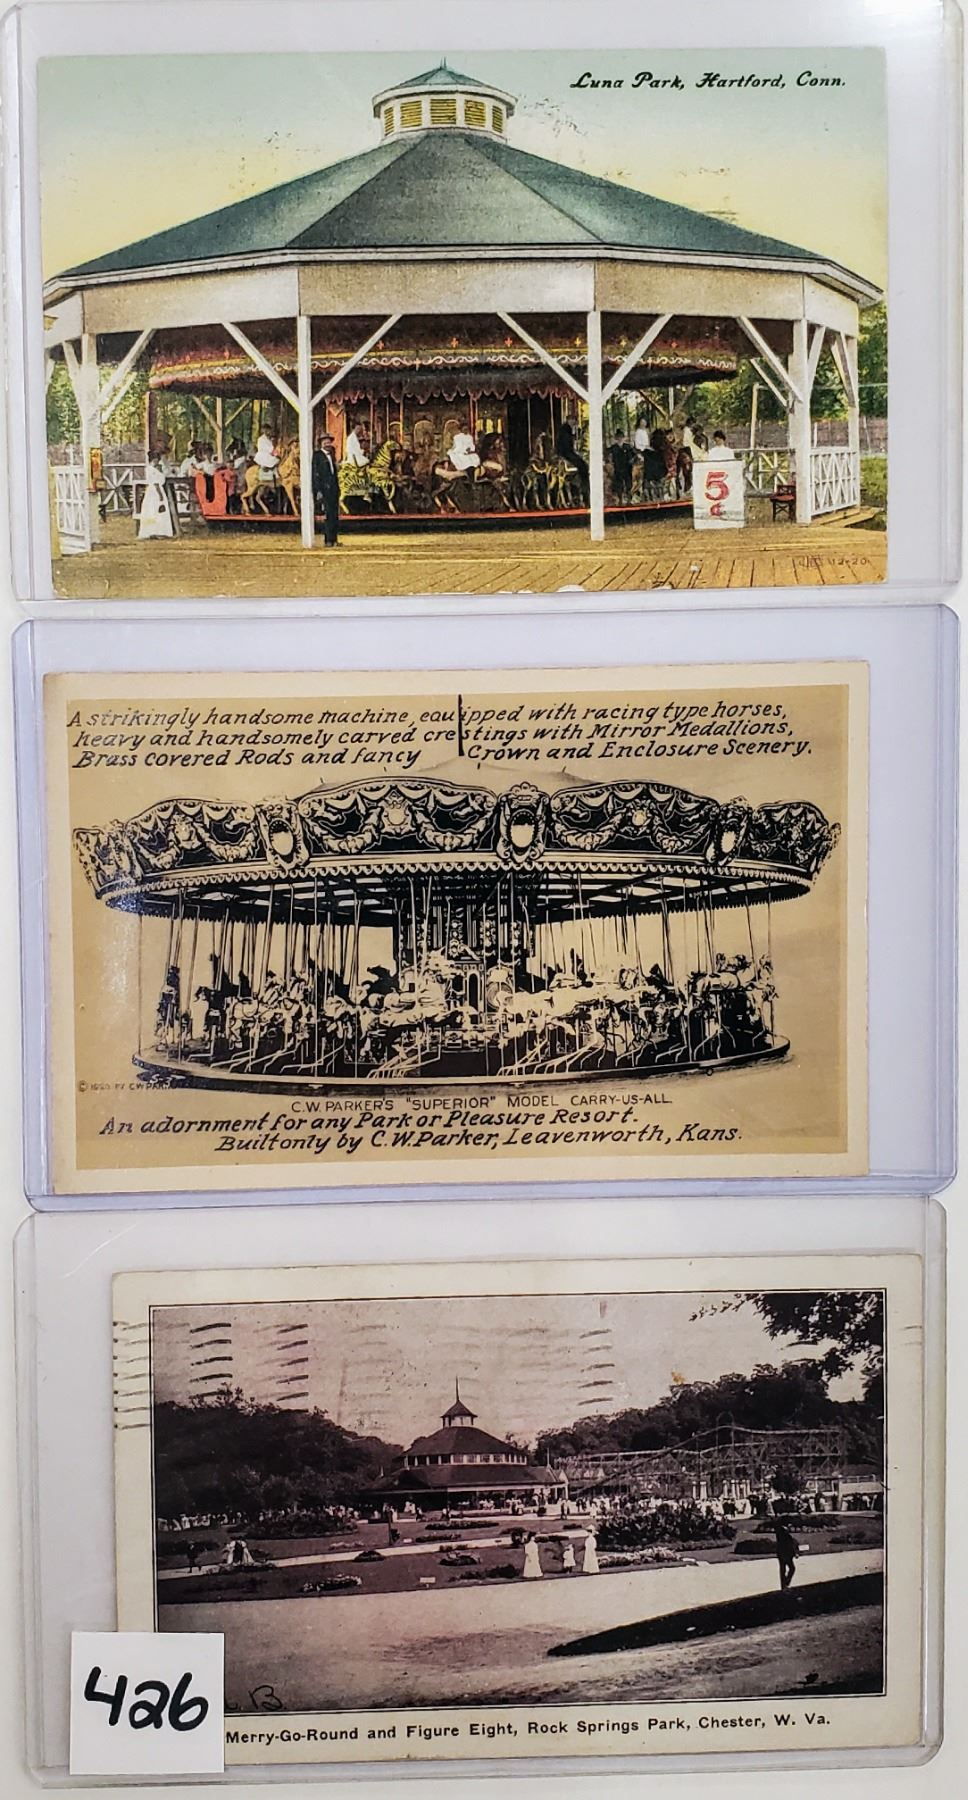 Luna Park, Hartford, Conn.
5
¢
12-20
A strikingly handsome machine, equipped with racing type horses,
heavy and handsomely carved crestings with Mirror Medallions,
Brass covered Rods and fancy Crown and Enclosure Scenery.
BY C.W. PARKER
C.W. PARKER'S "SUPERIOR" MODEL CARRY-US-ALL.
An adornment for any Park or Pleasure Resort.
Built only by C.W. Parker, Leavenworth, Kans.
B
426
Merry-Go-Round and Figure Eight, Rock Springs Park, Chester, W. Va.